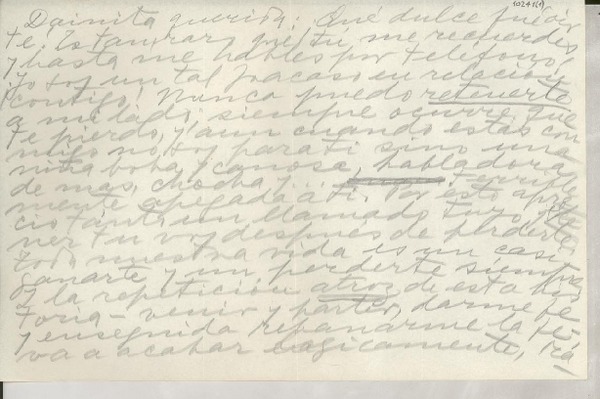 10241(1)
Doinita querida: Qué dulce fué oir
te! Es tan raro que tú me recuerdes
y hasta me hables por teléfono!
Yo soy un tal fracaso en relación
contigo! Nunca puedo retenerte
a mi lado, siempre ocurre que
te pierdo, y aun cuando estás con
migo no soy para ti sino una
niña boba y canosa, habladora
de mas, chocha y... terrible
mente apegada a ti. Por esto apre
cio tánto un llamado tuyo, y te
ner tu voz después de perderte.
Todo nuestra vida es un casi
ganarte y un perderte siempre
y la repetición atroz de esta his
toria - venir y partir, darme fe
y enseguida rebanarme la fe,
va a acabar trágicamente,